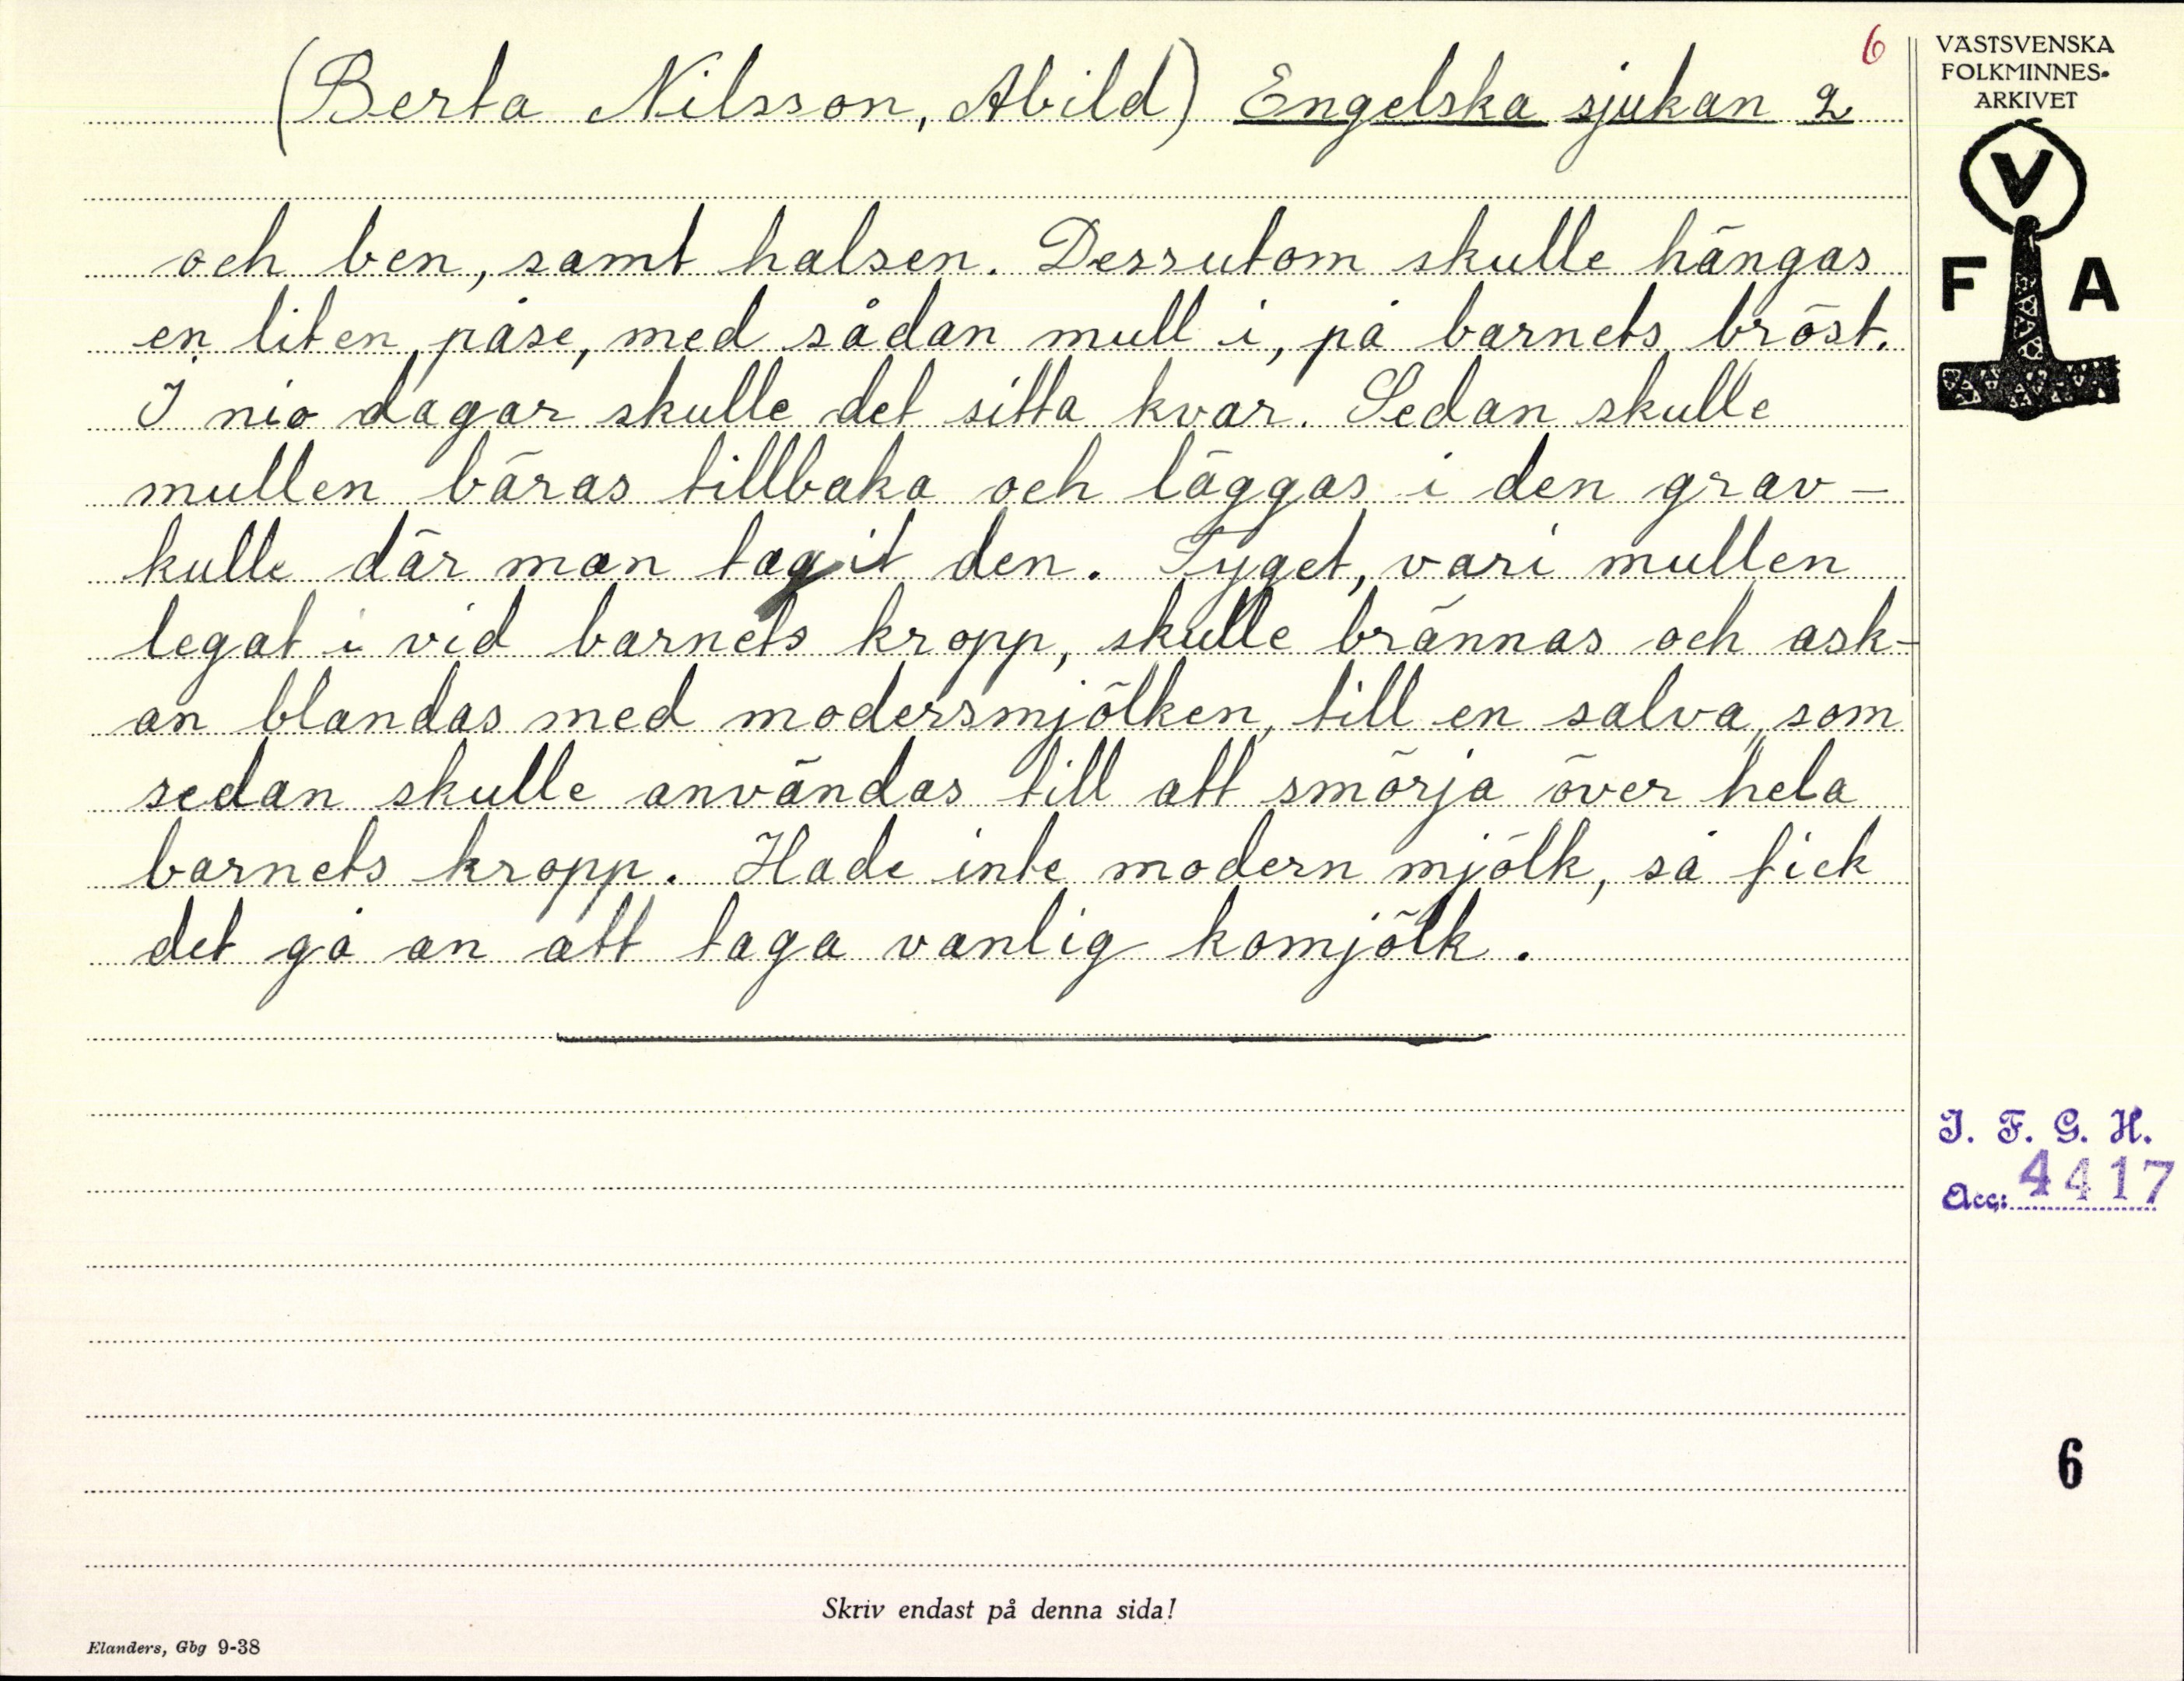 6
(Berta Nilsson, Abild) Engelska sjukan 2
och ben, samt halsen. Dessutom skulle hängas
en liten påse, med sådan mull i, på barnets bröst.
I nio dagar skulle det sitta kvar. Sedan skulle
mullen bäras tillbaka och läggas i den grav-
kulle där man tagit den. Tyget, vari mullen
legat i vid barnets kropp, skulle brännas och ask-
an blandas med modersmjölken, till en salva, som
sedan skulle användas till att smörja över hela
barnets kropp. Hade inte modern mjölk, så fick
det gå an att taga vanlig komjölk.
Skriv endast på denna sida!
Elanders, Gbg 9-38
VÄSTSVENSKA
FOLKMINNES-
ARKIVET
V
F A
I. F. G. H.
Acc: 4417
6